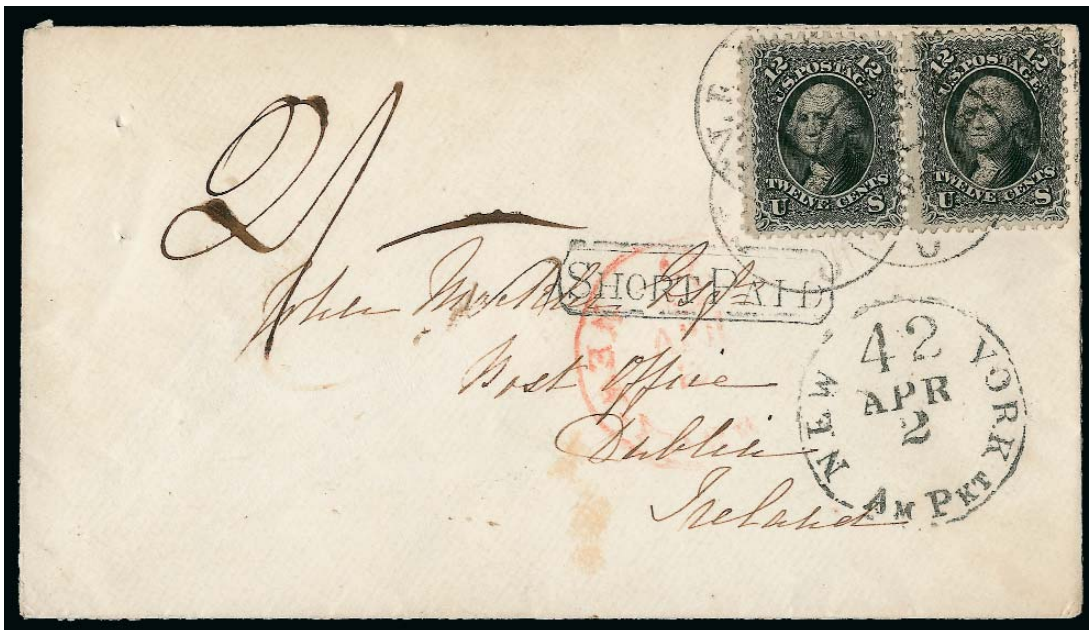 12 12
U.S. POSTAGE
TWELVE CENTS
U S
12 12
U.S. POSTAGE
TWELVE CENTS
U S
2/
SHORT PAID
John
Post Office
Dublin
Ireland
NEW YORK
42
APR
2
AM PKT
APR